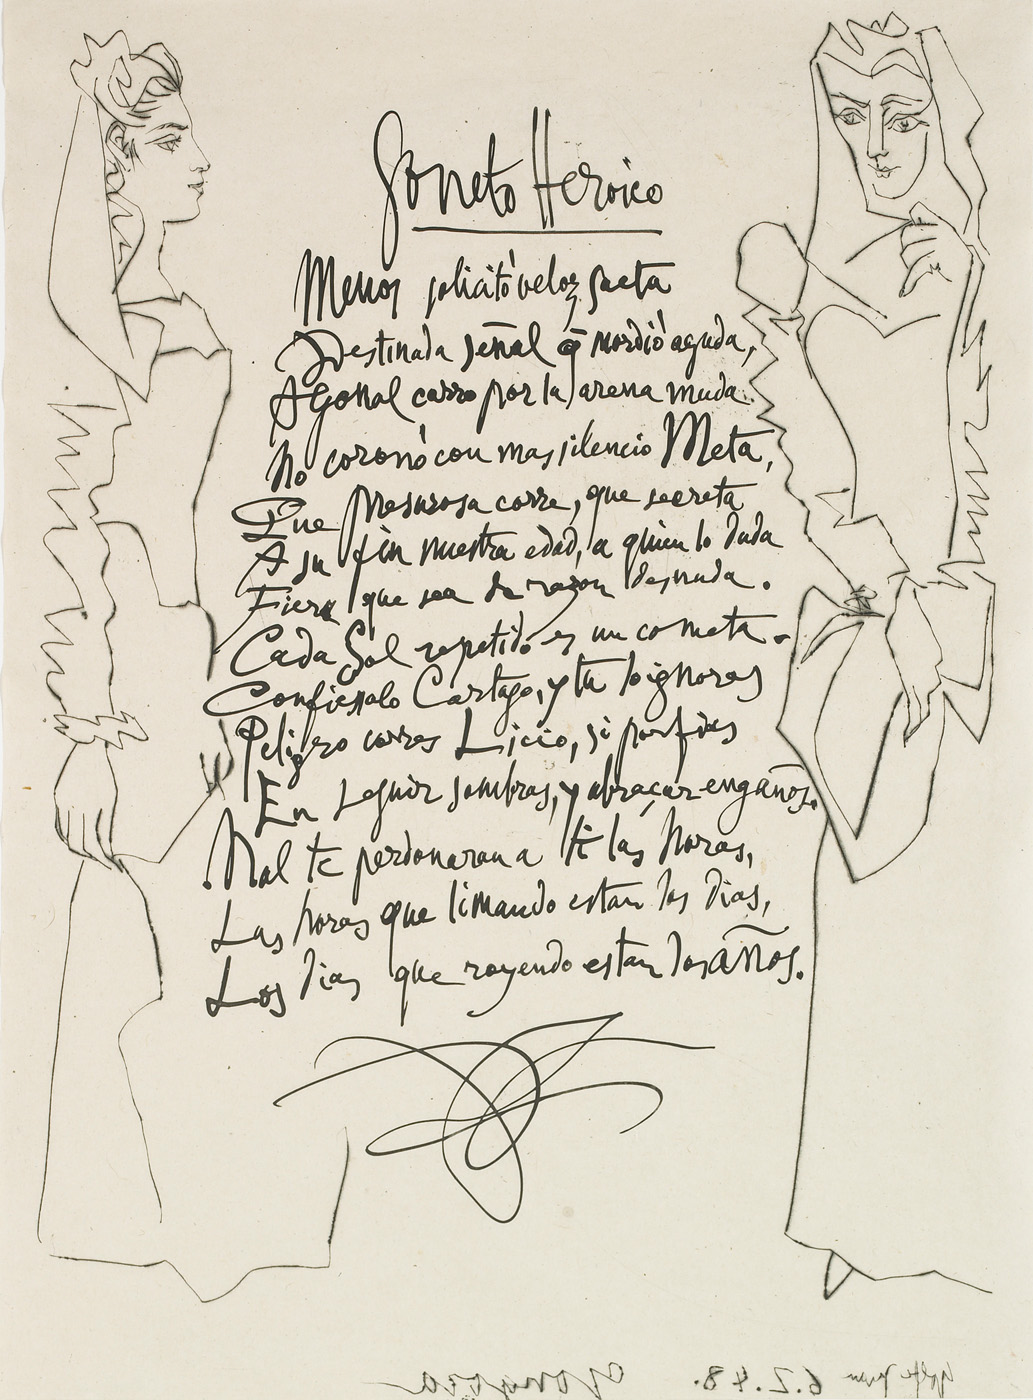 Soneto Heroico
Menos solicitó veloz saeta
Destinada señal q̄ mordió aguda,
Agonal carro por la arena muda.
No coronó con mas silencio Meta,
Que Presurosa corre, que secreta
A su fin nuestra edad, a quien lo duda
Fiera que sea de razon desnuda.
Cada Sol repetido es un cometa.
Confiesalo Cartago, y tu lo ignoras
Peligro corres Licio, si porfias
En seguir sombras, y abraçar engaños.
Mal te perdonaran a ti las horas,
Las horas que limando estan los dias,
Los dias que royendo estan los años.
Góngora Golfe Juan 6.2.48.